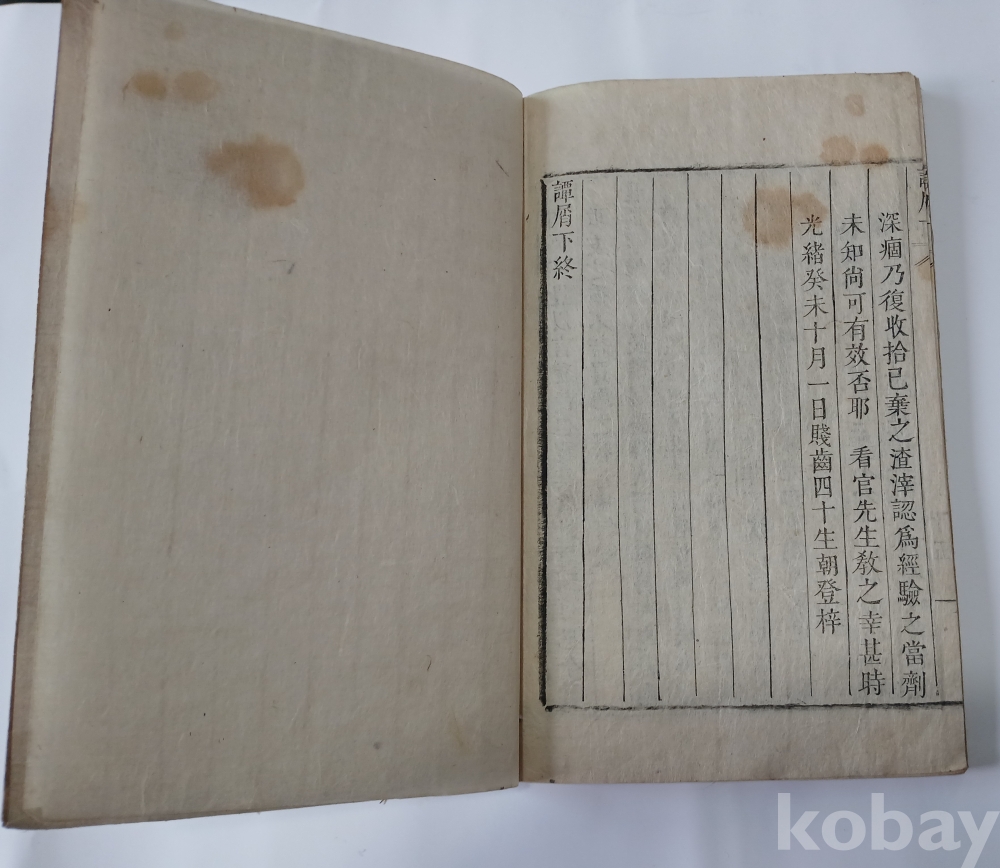 譚屑下
深痼乃復收拾已棄之渣滓認爲經驗之當劑
未知尙可有效否耶 看官先生敎之幸甚時
光緖癸未十月一日賤齒四十生朝登梓
譚屑下終
kobay